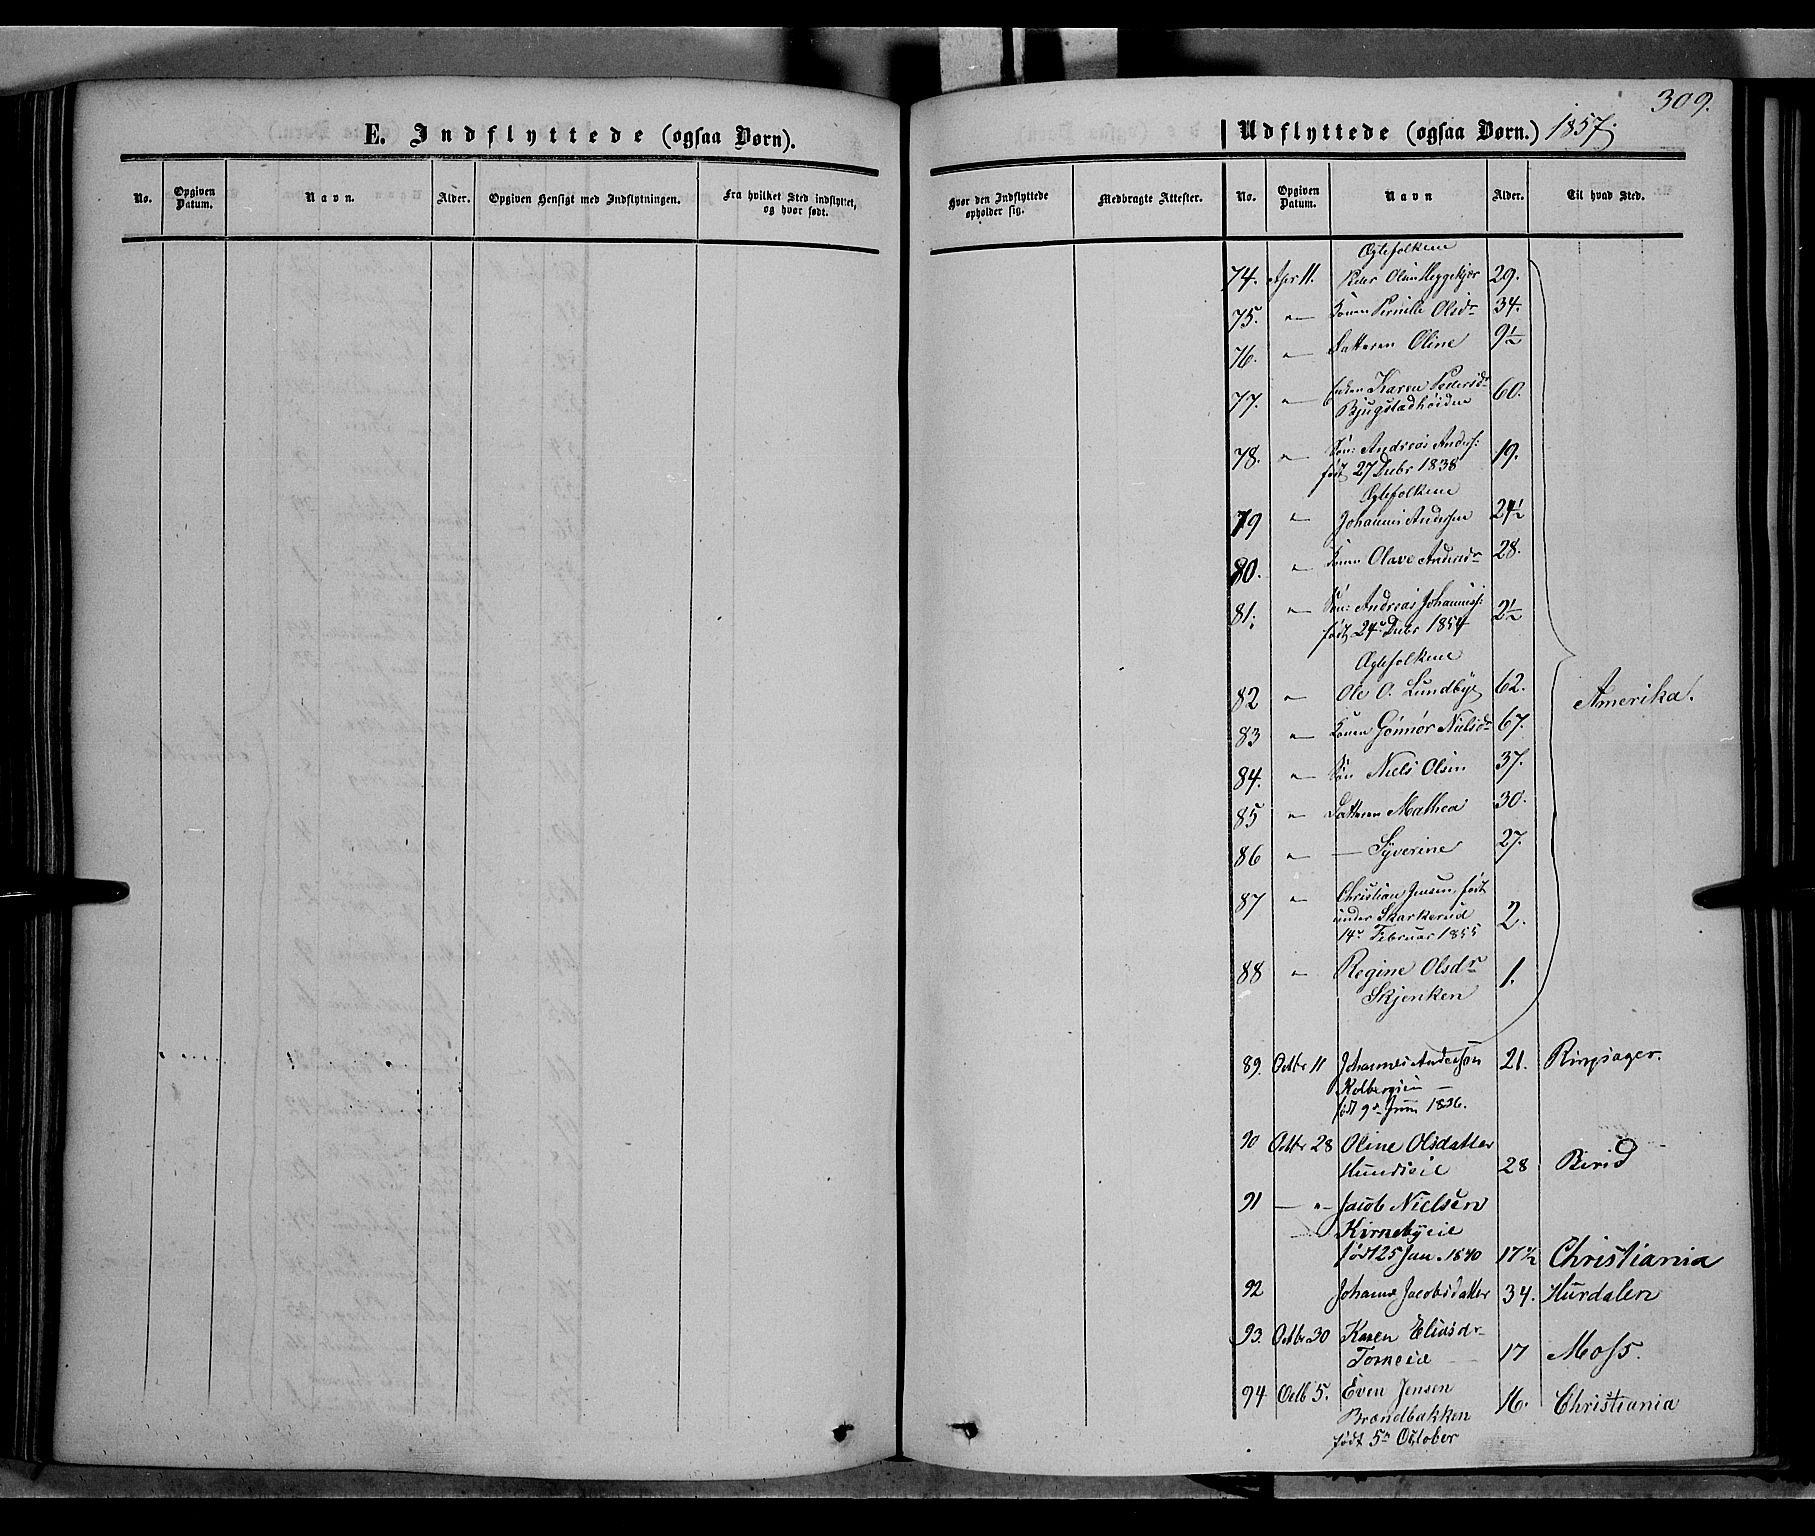 309.
E. Indflyttede (ogsaa Børn).
No. Opgiven Datum. Navn. Alder. Opgiven Hensigt med Indflytningen. Fra hvilket Sted indflyttet, og hvor født.
Hvor den Indflyttede opholder sig. Medbragte Attester.
Udflyttede (ogsaa Børn.) 1857.
No. Opgiven Datum. Navn Alder. Til hvad Sted.
Ægtefolkene
74. Apr 11. Peder Olsen Heggekjær 29.
75. " Konen Pernille Olsdr 34.
76. " Datteren Oline 9½
77. " Enken Karen Pedersdr 60.
Bjugstadhøiden
78. " Søn: Andreas Anders: 19.
født 27 Decbr 1838
Ægtefolkene
79 " Johannes Andersen 24½
80. " Konen Olave Andersdr 28.
81. " Søn: Andreas Johanness: 2½
født 24de Decbr 1854
Ægtefolkene
82 " Ole O. Lundbye 62.
Amerika.
83 " Konen Gønnør Nielsdr 67.
84. " Søn Niels Olsen 37.
85 " Datteren Mathea 30.
86 " — Syverine 27.
87 " Christian Jensen, født
under Skarkerud 2.
14de Februar 1855
88 " Regine Olsdr 1.
Skjenken
89. Octbr 11 Johannes Andersen 21. Ringsager.
Kolbergseie
født 9de Juni 1836.
90 Octbr 28 Oline Olsdatter
Hundseie 28 Birid
91 — " Jacob Nielsen
Kirnebyeie
født 25 Jan. 1840 17½ Christiania
92 Johanne Jacobsdatter 34. Hurdalen
93. Octbr 30 Karen Eliasdr
Tomeie 17 Moss.
94 Octb 5. Even Jensen 16. Christiania
Brændbakken
født 5te October